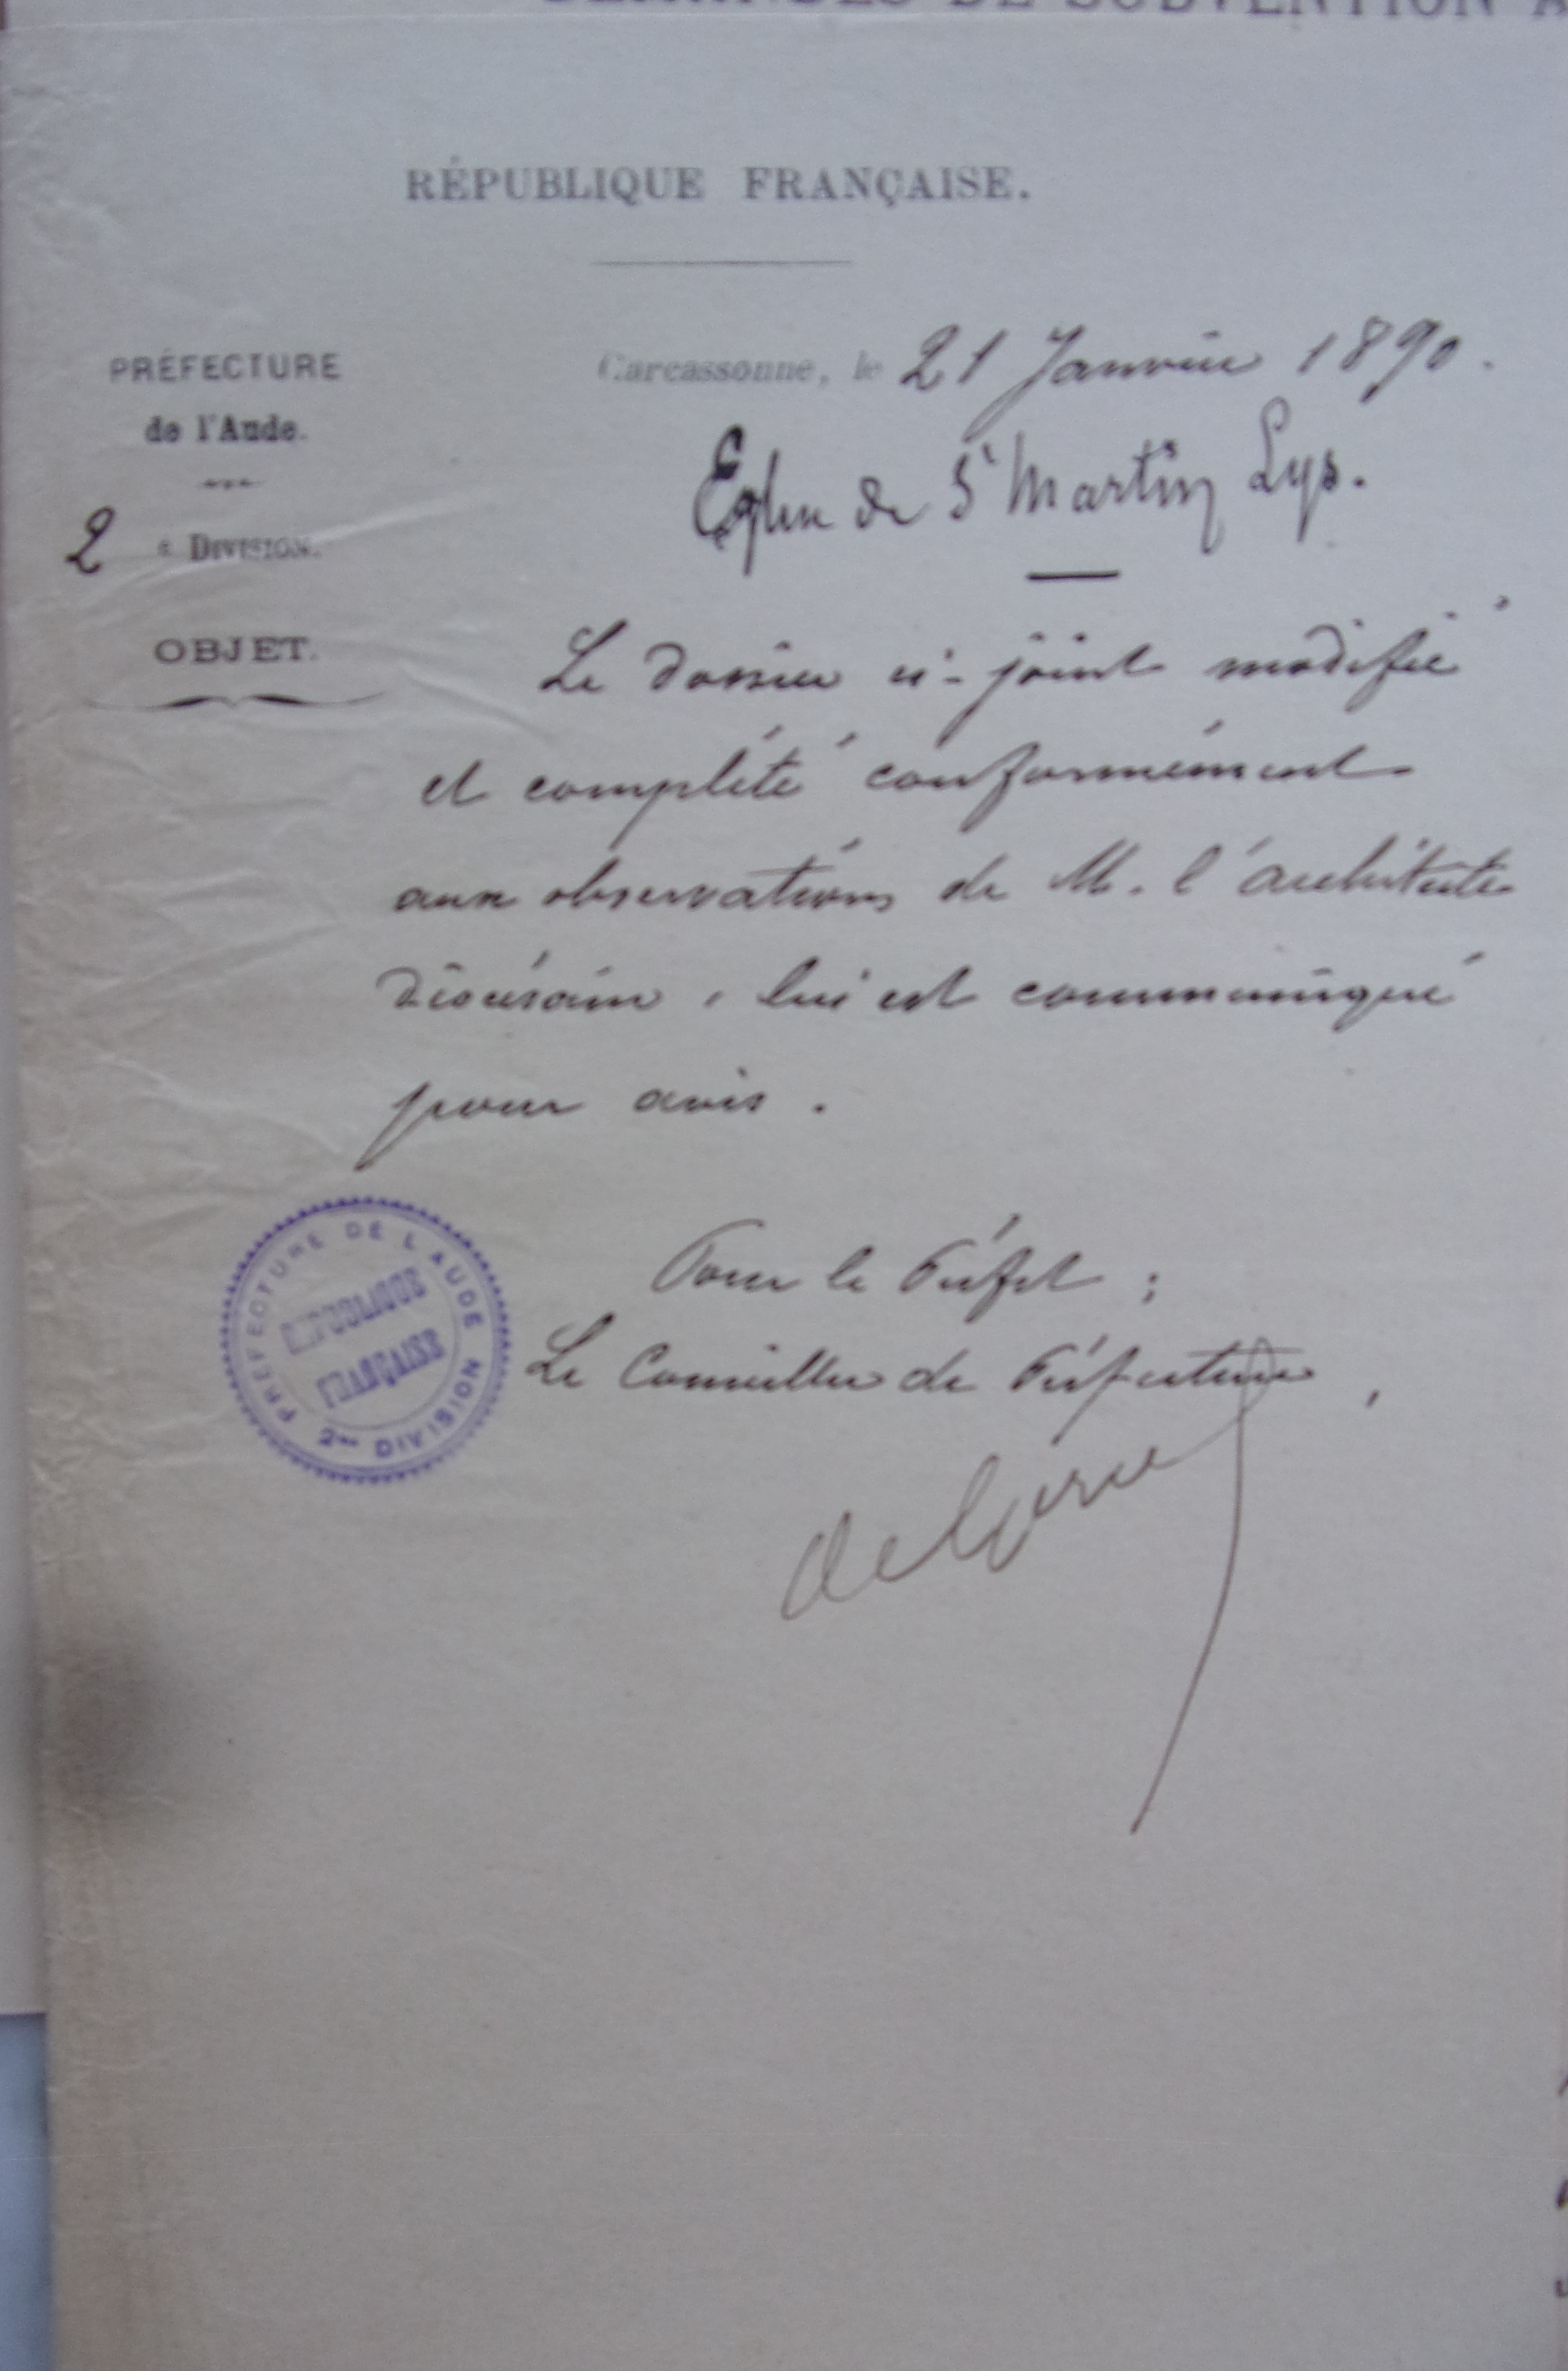 DEMANDES DE SUBVENTION A
RÉPUBLIQUE FRANÇAISE.
PRÉFECTURE
de l'Aude.
2e DIVISION.
OBJET.
Carcassonne, le 21 Janvier 1890.
Eglise de St Martin Lys.
Le dossier ci-joint modifié
et complété conformément
aux observations de M. l'architecte
diocésain, lui est communiqué
pour avis.
Pour le Préfet :
Le Conseiller de Préfecture,
PRÉFECTURE DE L'AUDE
RÉPUBLIQUE
FRANÇAISE
2me DIVISION